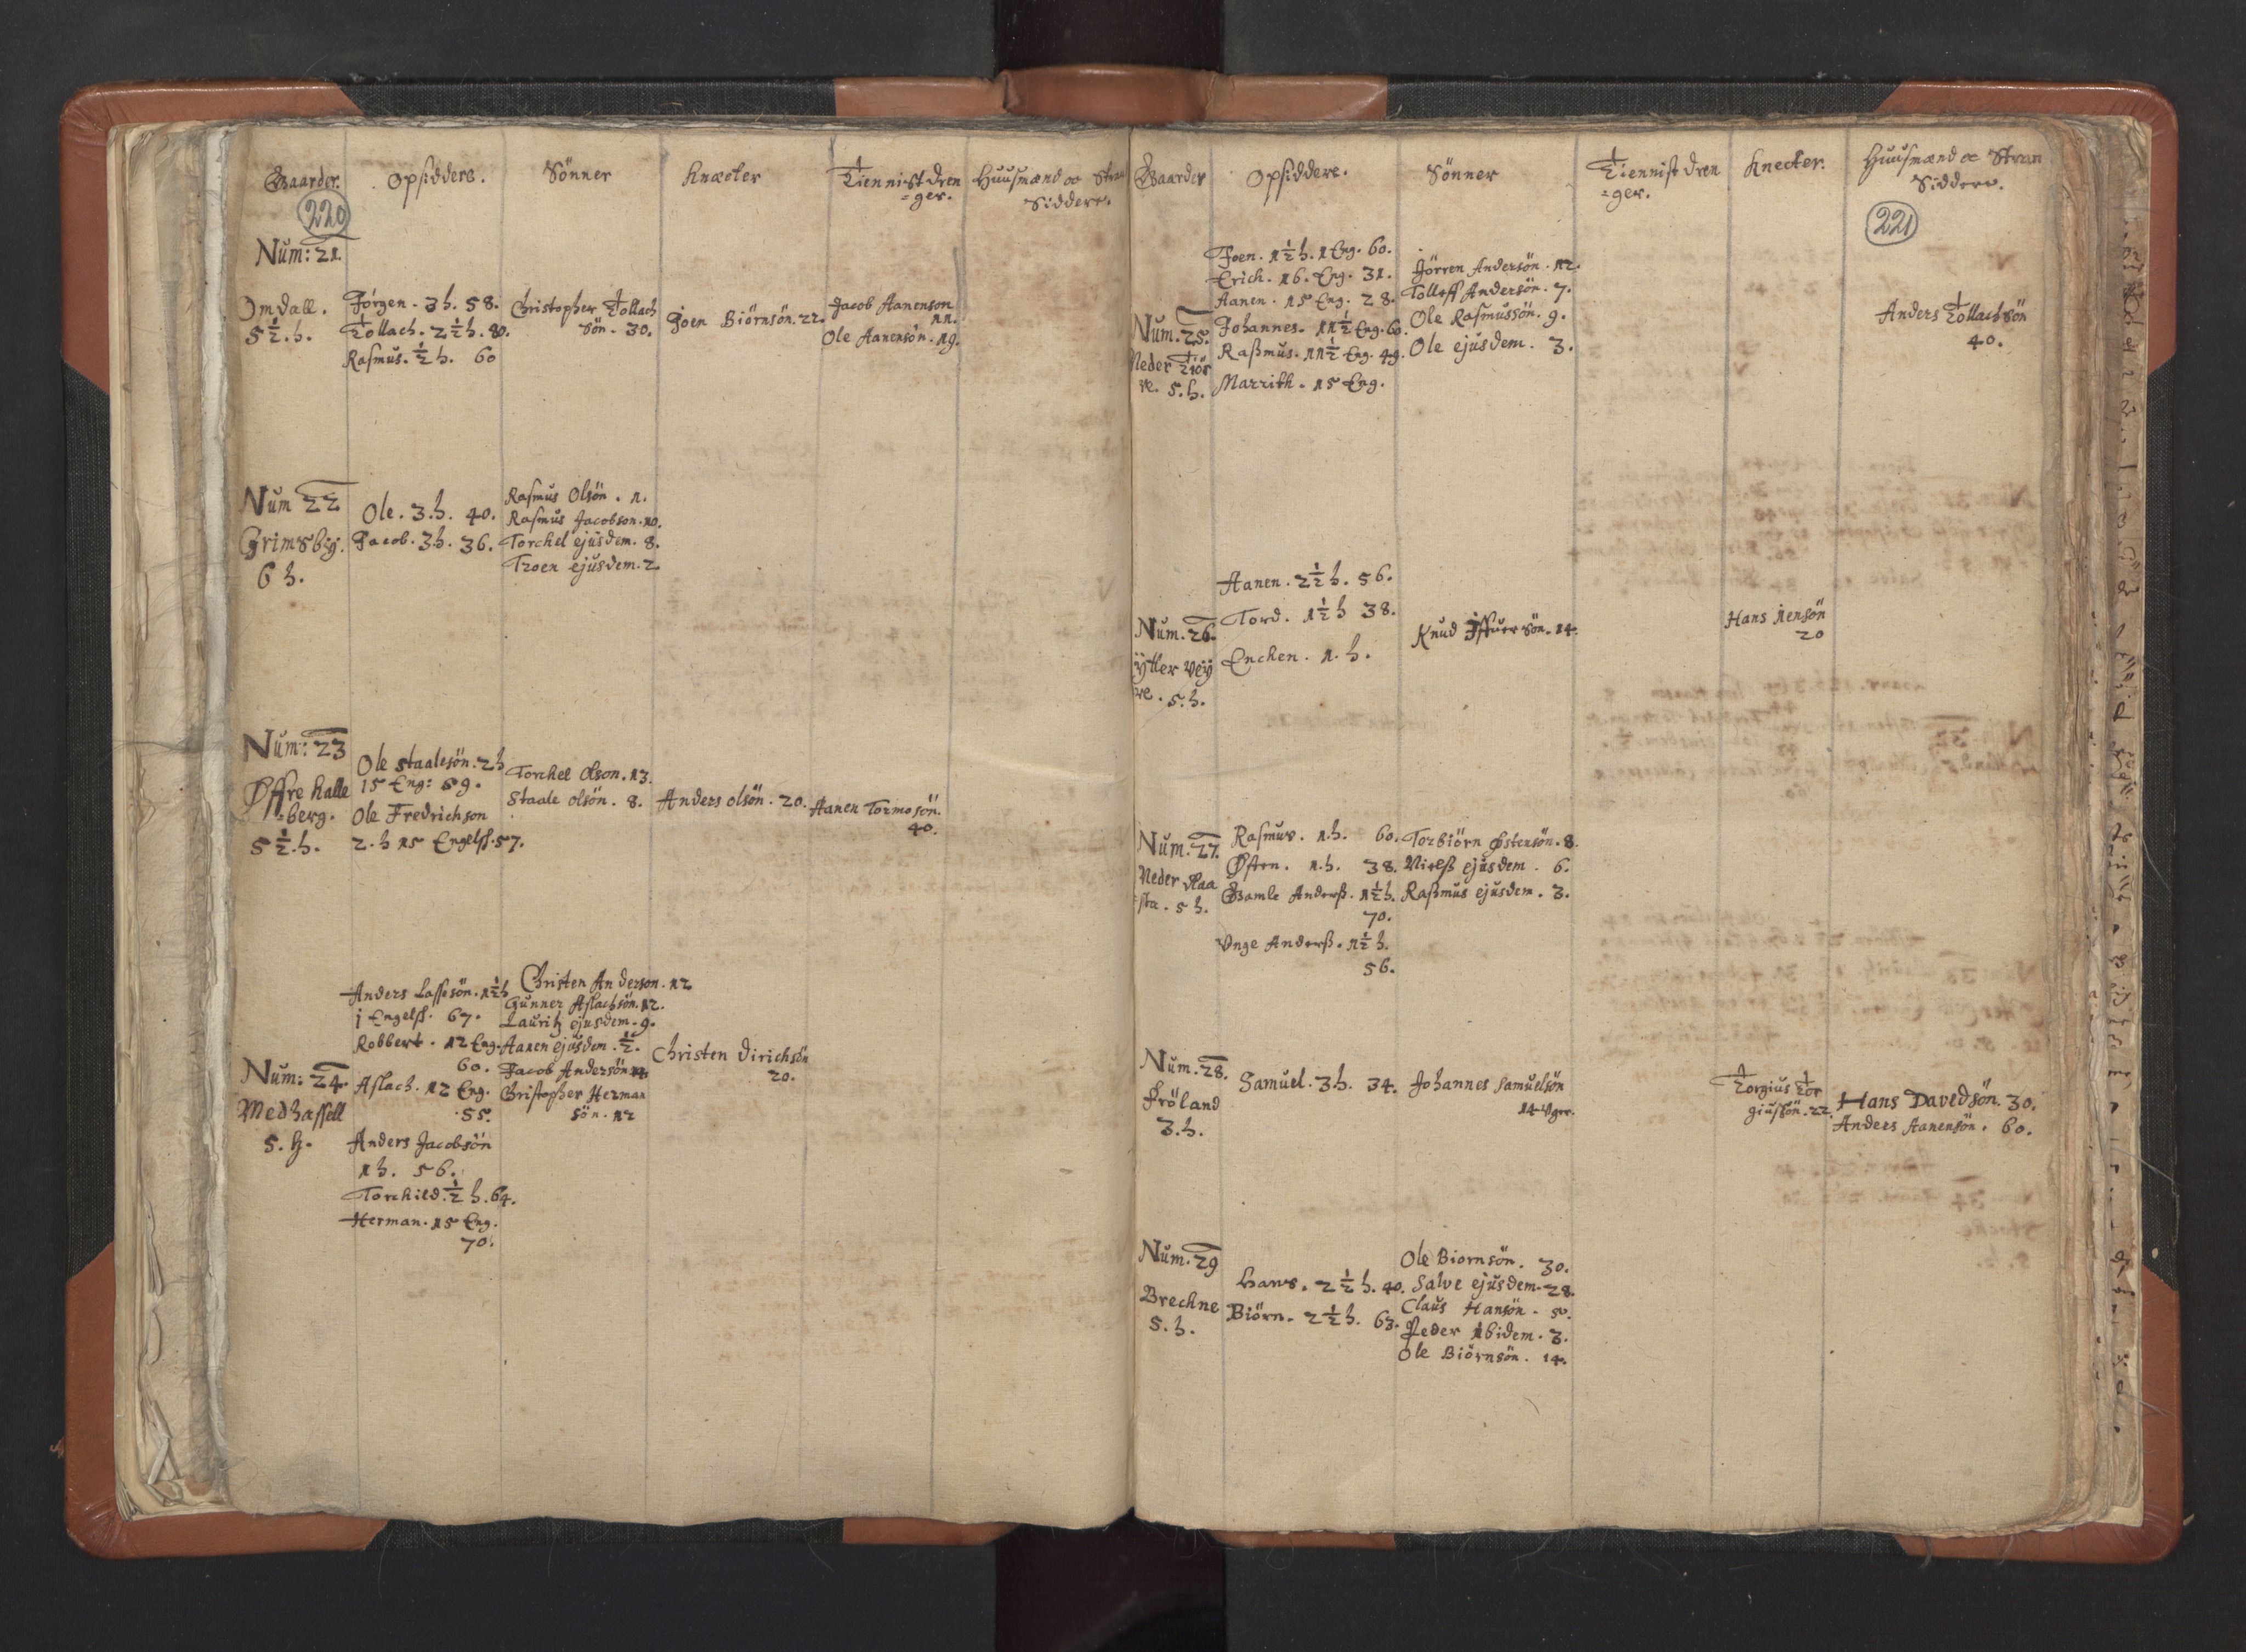 Gaarder. Opsiddere. Sönner Knæcter Tiennist Dren Huusmænd oc Stran
=ger. Siddere.
220
Num: 21.
Omdall.
5 ½. h.
Jörgen. 3 h. 58.
Tollach. 2 ½ h. 80.
Rasmus. ½ h. 60
Christopher Tollach
Sön. 30.
Joen Biörnsön. 22.
Jacob Aanenson
11.
Ole Aanensön. 19.
Num 22
Grimsbÿ.
6 h.
Ole. 3. h. 40.
Jacob. 3 h. 36.
Rasmus Olsön. 1.
Rasmus Jacobson. 10.
Torchel ejusdem. 8.
Troen ejusdem. 2.
Num: 23
Øffre Kalle
=berg.
5 ½. h.
Ole Staalesön. 2 h
15 Eng: 69.
Ole Fredrichson
2. h 15 Engelsk. 57.
Torchel Olson. 13.
Staale Olsön. 8.
Anders Olsön. 20.
Aanen Tormosön.
40.
Num: 24.
Medhassell
5. h.
Anders Lassesön. 1 ½ h
j Engelsk. 67.
Robbert. 12 Eng.
60.
Aslach. 12 Eng.
55.
Anders Jacobsön
1 h. 56.
Torchild. ½ h. 64.
Herman. 15 Eng.
70.
Christen Anderson. 12
Gunner Aslachsön. 12.
Lauritz ejusdem. 9.
Aanen ejusdem. ½.
Jacob Andersön
Christopher Herman
sön. 12
Christen Dirichsön
20.
Gaarder Opsiddere. Sönner Tiennist Dren Knecter. Huusmænd oc Stran
=ger. Siddere.
221
Num. 25.
Neder Tiör
ve. 5. h.
Joen. 1 ½ h. 1 Eng. 60.
Erich. 16. Eng. 31.
Aanen. 15 Eng. 28.
Johannes. 11 ½ Eng. 60.
Rasmus. 11 ½ Eng. 49.
Marrith. 15 Eng.
Jörren Andersön. 12.
Tolleff Andersön. 7.
Ole Rasmussön. 9.
Ole ejusdem. 3.
Anders Tollachsön
40.
Num. 26.
ÿtter Veÿ
re. 5. h.
Aanen. 2 ½ h. 56.
Tord. 1 ½ h 38.
Enchen. 1. h.
Knud Iffuersön. 14.
Hans Jensön
20
Num. 27.
Neder Slaa
sta. 5 h.
Rasmus. 1. h. 60.
Østen. 1. h. 38.
Gamle Anders. 1 ½ h.
70.
Unge Anders. 1 ½ h.
56.
Torbiörn Østensön. 8.
Niels ejusdem. 6.
Rasmus ejusdem. 3.
Num. 28.
Fröland
3. h.
Samuel. 3 h. 34.
Johannes Samuelsön
14 Uger.
Torgius Tor
giussön. 22.
Hans Davedsön. 30.
Anders Aanensön. 60.
Num. 29
Brechne
5. h.
Hans. 2 ½ h. 40.
Biörn. 2 ½ h. 63.
Ole Biornsön. 30.
Salve ejusdem. 28.
Claus Hansön. 5.
Peder ibidem. 3.
Ole Biörnsön. 14.